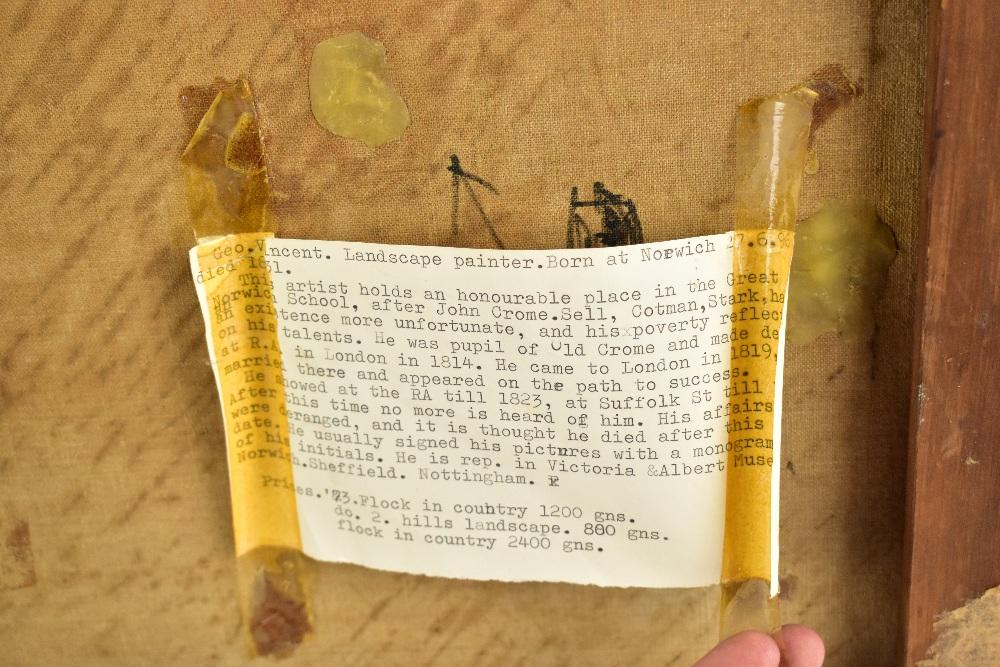 Geo.Vincent. Landscape painter.Born at Norwich 27.6.96
died 1831.
This artist holds an honourable place in the Great
Norwich School, after John Crome.Sell, Cotman,Stark,ha
an existence more unfortunate, and his poverty reflect
on his talents. He was pupil of Old Crome and made de
at R.A. in London in 1814. He came to London in 1819,
married there and appeared on the path to success.
He showed at the RA till 1823, at Suffolk St till
After this time no more is heard of him. His affairs
were deranged, and it is thought he died after this
date. He usually signed his pictures with a monogram
of his initials. He is rep. in Victoria &Albert Muse
Norwich.Sheffield. Nottingham.
Prices.'73.Flock in country 1200 gns.
do. 2. hills landscape. 800 gns.
flock in country 2400 gns.